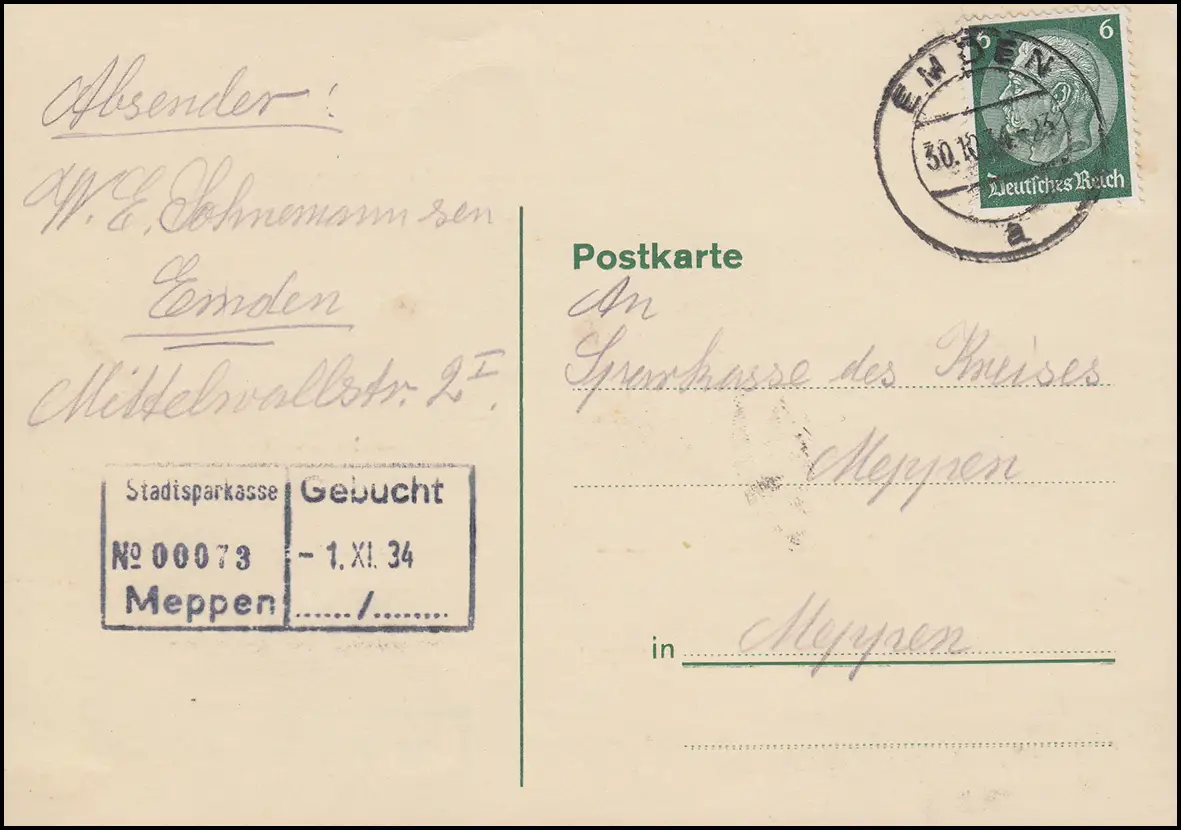 Absender:
W. E. Sohnemann sen
Emden
Mittelwallstr. 2 I.
Stadtsparkasse
№ 00073
Meppen
Gebucht
- 1. XI. 34
....../........
6 6
Deutsches Reich
EMDEN
30.10.34
a
Postkarte
An
Sparkasse des Kreises
Meppen
in Meppen